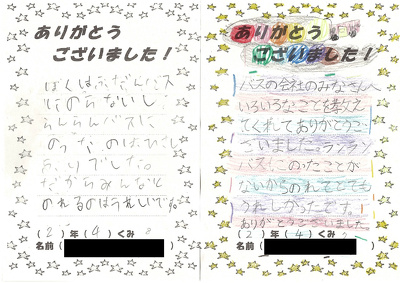 ありがとう
ございました!
ぼくはふだんバス
にのらないし
らんらんバスに
のったのはひさし
ぶりでした。
だからみんなと
のれるのはうれしいです。
(2)年(4)くみ
名前(
ありがとう
ございました!
バスの会社のみなさんへ
いろいろなことを教え
てくれてありがとうご
ざいました。ランラン
バスにのったことが
ないからのれてとても
うれしかったです。
ありがとうございました
(2)年(4)くみ
名前(